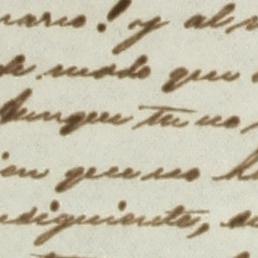 nario! y al
de modo que
Aunque tu no
ien que no h
nsiguiente, su